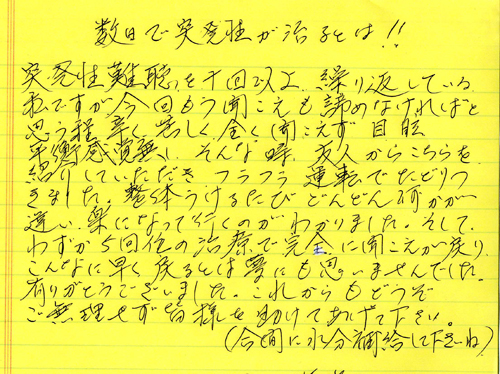 数日で突発性が治るとは!!
突発性難聴を十回以上、繰り返している
私ですが今回もう聞こえも諦めなければと
思う程辛く、苦しく、全く聞こえず、目眩
平衡感覚無し、そんな時、友人からこちらを
紹介していただき、フラフラ運転でたどりつ
きました。整体うけるたびどんどん何かが
違い、楽になって行くのがわかりました。そして、
わずか5回位の治療で完全に聞こえが戻り、
こんなに早く戻るとは夢にも思いませんでした。
有りがとうございました。これからもどうぞ
ご無理せず皆様を助けてあげて下さい。
(合間に水分補給して下さいね)